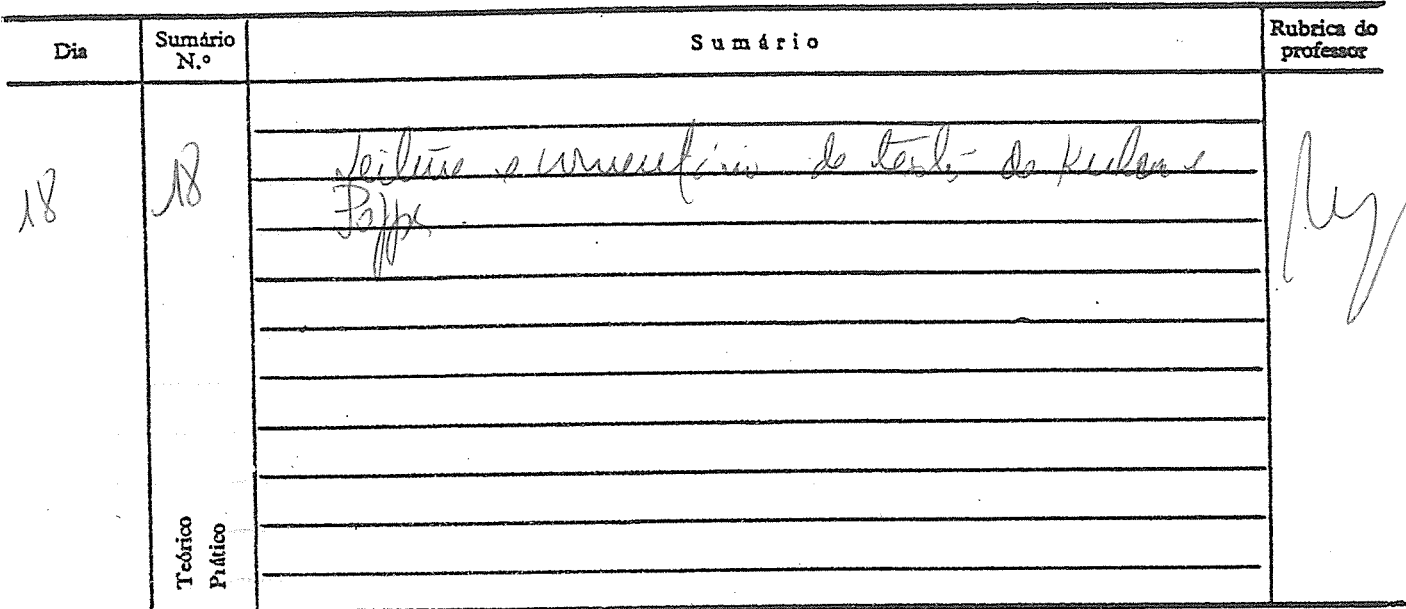 Dia
Sumário N.º
Sumário
Rubrica do professor
18
18
Leitura e comentário de textos de Kuhn e
Popper.
Teórico
Prático